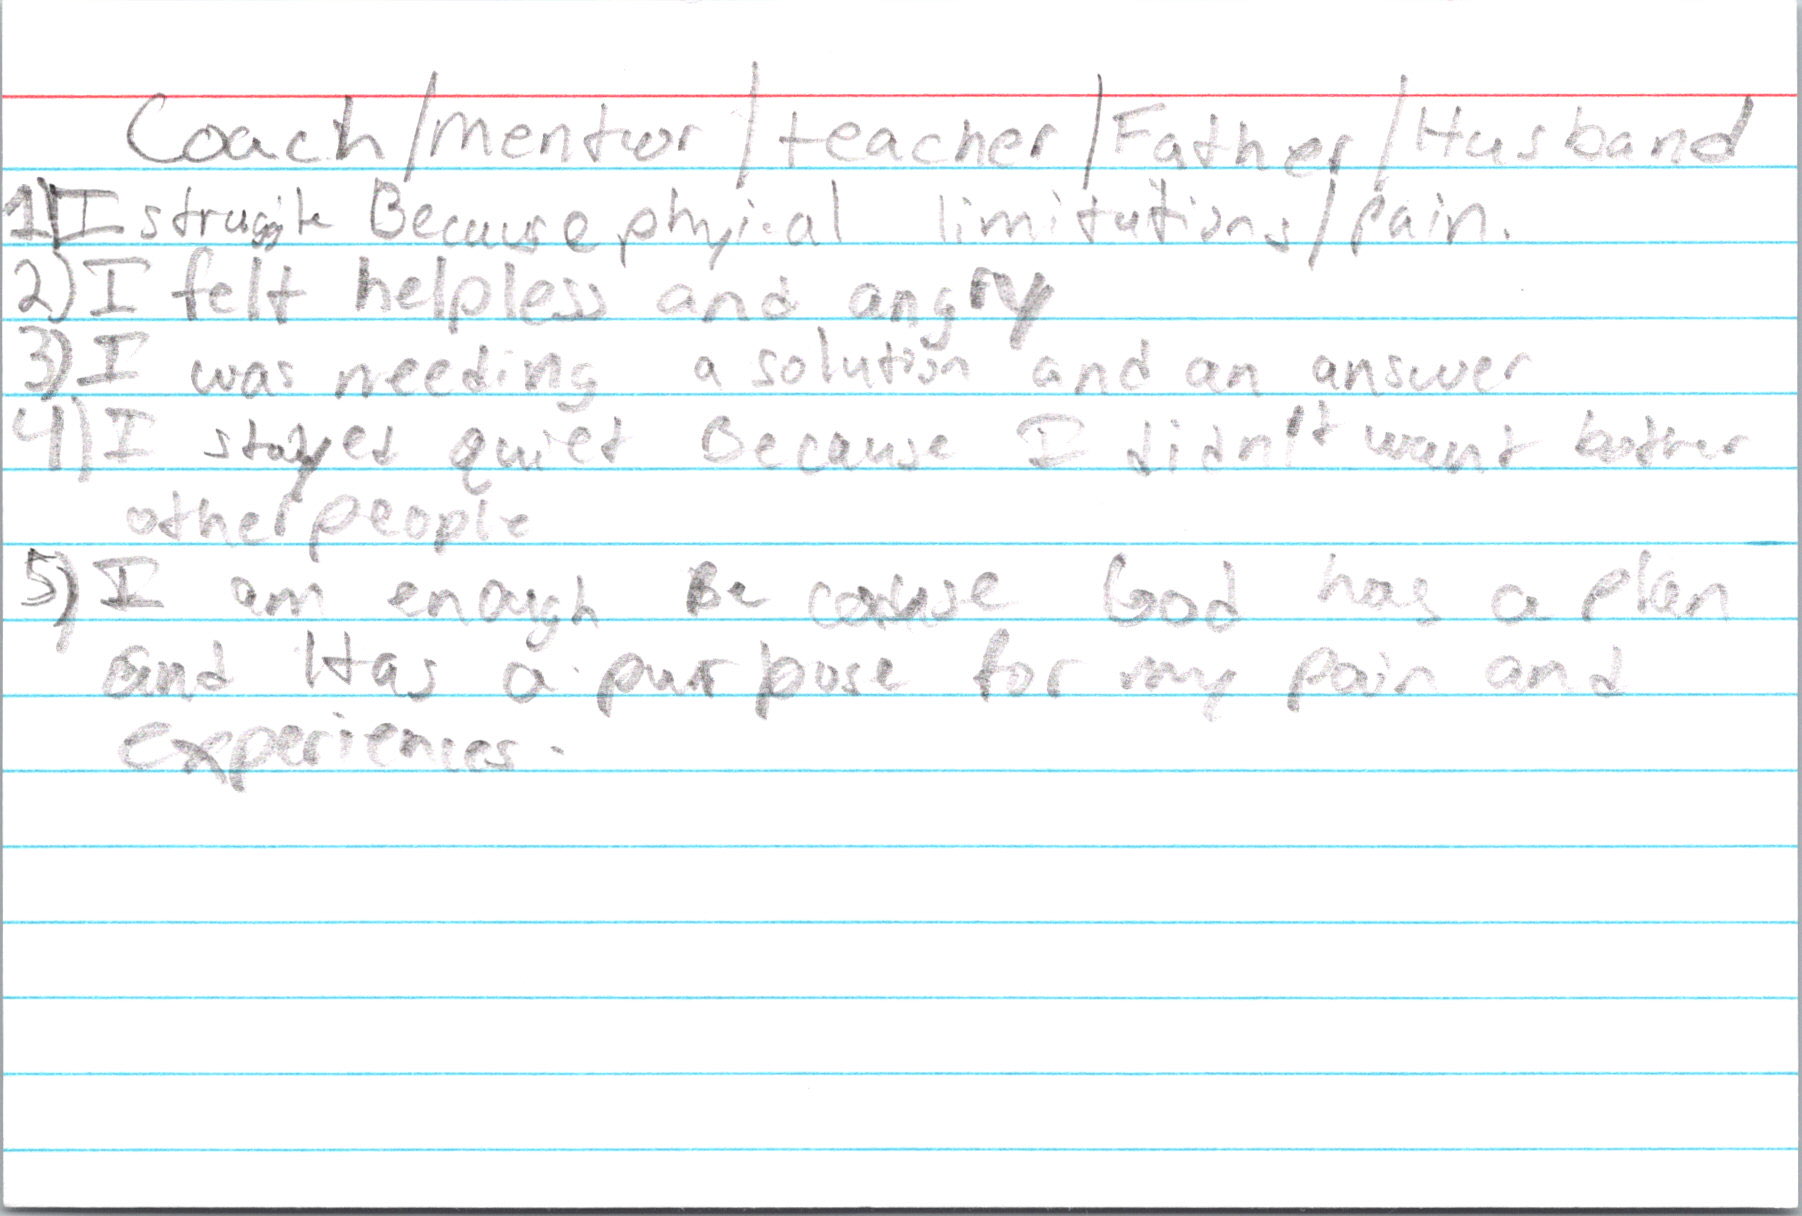 Coach/mentor/teacher/Father/Husband
1) I struggle Because phyical limitations/pain.
2) I felt helpless and angry
3) I was needing a solution and an answer
4) I stayed quiet Because I didn't want bother
other people
5) I am enough Because God has a plan
and Has a purpose for my pain and
experiences.